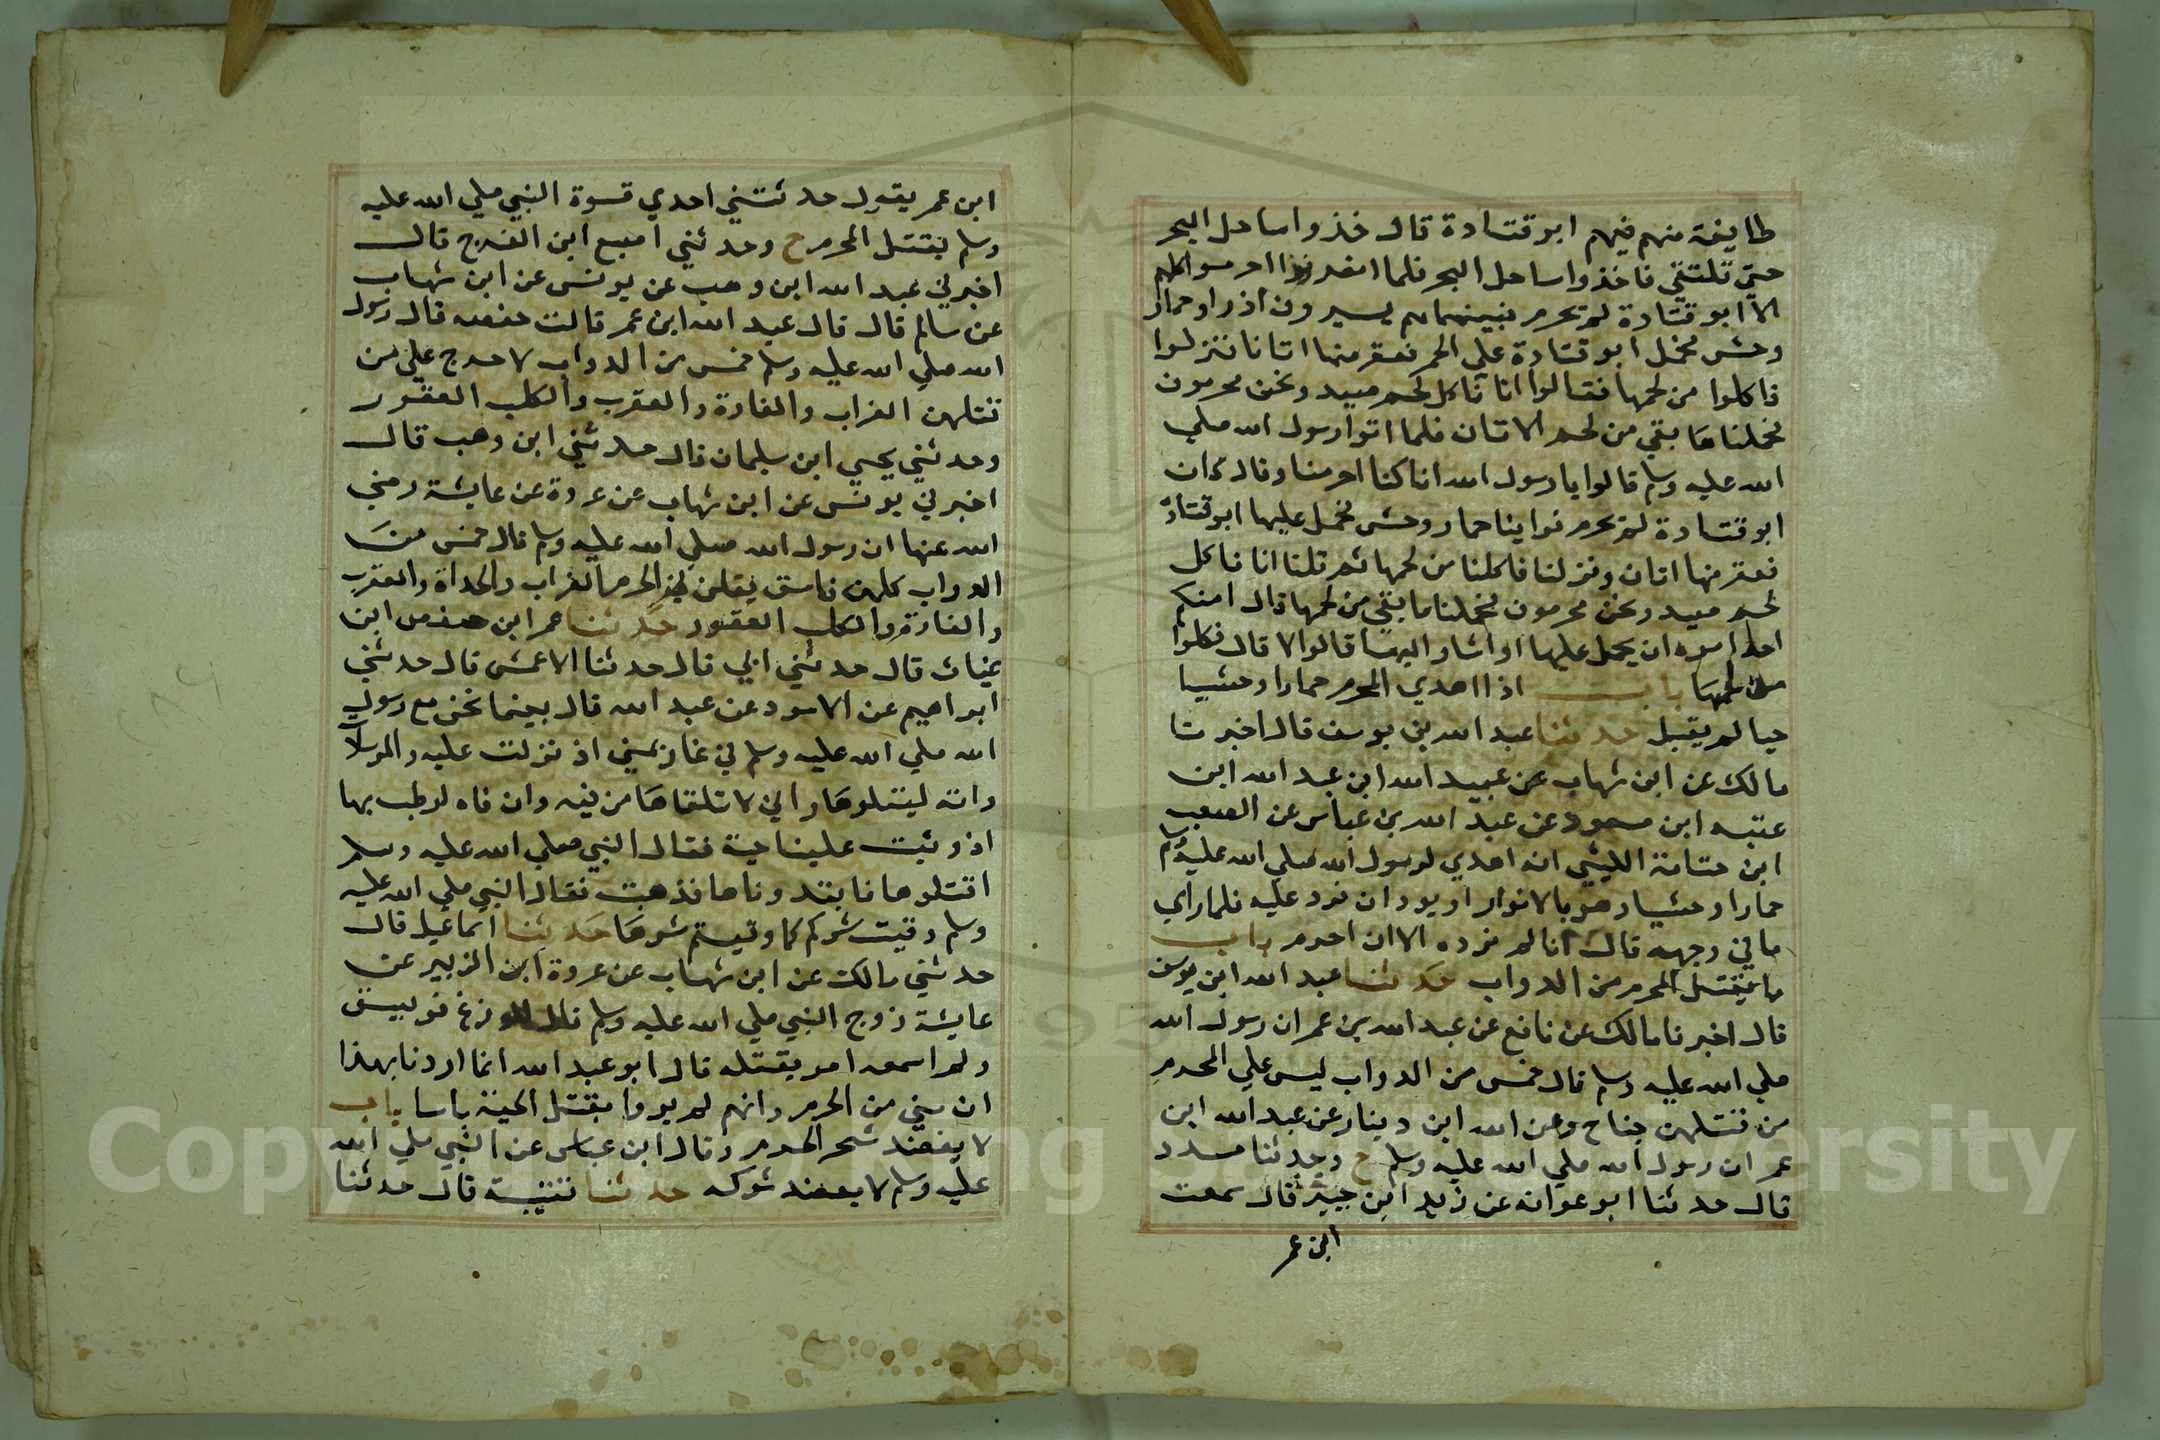 طايفة منهم فيهم ابو قتادة قال خذوا ساحل البحر
حتي نلتقي فاخذوا ساحل البحر فلما انصرفوا احرموا كلهم
الا ابو قتادة لم يحرم فبينما هم يسيرون اذ راو حمار
وحش فحمل ابو قتادة علي الحمر فعقر منها اتانا فنزلوا
فاكلوا من لحمها فقالوا انا ناكل لحم صيد ونحن محرمون
فحملنا ما بقي من لحم الاتان فلما اتوا رسول الله صلي
الله عليه وسلم قالوا يا رسول الله انا كنا احرمنا وقال كان
ابو قتادة لم يحرم فراينا حمار وحش فحمل عليها ابو قتادة
فعقر منها اتان ونزلنا فاكلنا من لحمها ثم قلنا انا ناكل
لحم صيد ونحن محرمون فحملنا ما بقي من لحمها قال امنكم
احد امره ان يحمل عليها او اشار اليها قالوا لا قال فكلوا
من لحمها باب اذا اهدي المحرم حمارا وحشيا
حيا لم يقبل حدثنا عبد الله بن يوسف قال اخبرنا
مالك عن ابن شهاب عن عبيد الله ابن عبد الله ابن
عتبه ابن مسعود عن عبد الله بن عباس عن الصعب
ابن جثامة الليثي انه اهدي لرسول الله صلي الله عليه وسلم
حمارا وحشيا وهو بالابوار او بودان فرد عليه فلما راي
ما في وجهه قال انا لم نرده الا ان احرم باب
ما يقتل المحرم من الدواب حدثنا عبد الله ابن يوسف
قال اخبرنا مالك عن نافع عن عبد الله بن عمر ان رسول الله
صلي الله عليه وسلم قال خمس من الدواب ليس علي المحرم
من قتلهن جناح وعن الله ابن دينار عن عبد الله ابن
عمر ان رسول الله صلي الله عليه وسلم ح وحدثنا مسدد
قال حدثنا ابو عوانه عن زيد ابن جبير قال سمعت
ابن عمر
ابن عمر يقول حدثتني احدي نسوة النبي صلي الله عليه
وسلم يقتل المحرم ح وحدثني اصبع ابن الفرج قال
اخبرني عبد الله ابن وهب عن يونس عن ابن شهاب
عن سالم قال قال عبد الله ابن عمر قالت حفصه قال رسول
الله صلي الله عليه وسلم خمس من الدواب لا حرج علي من
قتلهن الغراب والفارة والعقرب والكلب العقور
وحدثني يحيي ابن سليمان قال حدثني ابن وهب قال
اخبرني يونس عن ابن شهاب عن عروة عن عايشة رضي
الله عنها ان رسول الله صلي الله عليه وسلم قال خمس من
الدواب كلهن فاسق يقلن في الحرم الغراب والحداة والعقرب
والفارة والكلب العقور حدثنا عمر ابن حفص ابن
غياث قال حدثني ابي قال حدثنا الاعمش قال حدثني
ابراهيم عن الاسود عن عبد الله قال بينما نحن مع رسول
الله صلي الله عليه وسلم في غار بمني اذ نزلت عليه والمرسلات
وانه ليتلوها واني لاتلقاها من فيه وان فاه لرطب بها
اذ وثبت علينا حية فقال النبي صلي الله عليه وسلم
اقتلوها فابتدرناها فذهبت فقال النبي صلي الله عليه
وسلم وقيت شركم كما وقيتم شرها حدثنا اسماعيل قال
حدثني مالك عن ابن شهاب عن عروة ابن الزبير عن
عايشة زوج النبي صلي الله عليه وسلم قال للوزغ فويسق
ولم اسمعه امر بقتله قال ابو عبد الله انما اردنا بهذا
ان مني من الحرم وانهم لم يروا بقتل الحية باسا باب
لا يعضد شجر الحرم وقال ابن عباس عن النبي صلي الله
عليه وسلم لا يعضد شوكه حدثنا قتيبة قال حدثنا